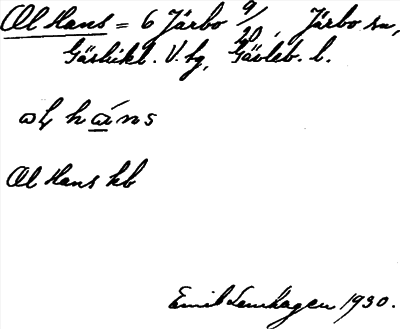 Ol Hans = 6 Järbo 9/20, Järbo sn,
Gästrikl. V. tg, Gävleb. l.
håns
Ol Hans hb
Emil Lenhagen 1930.